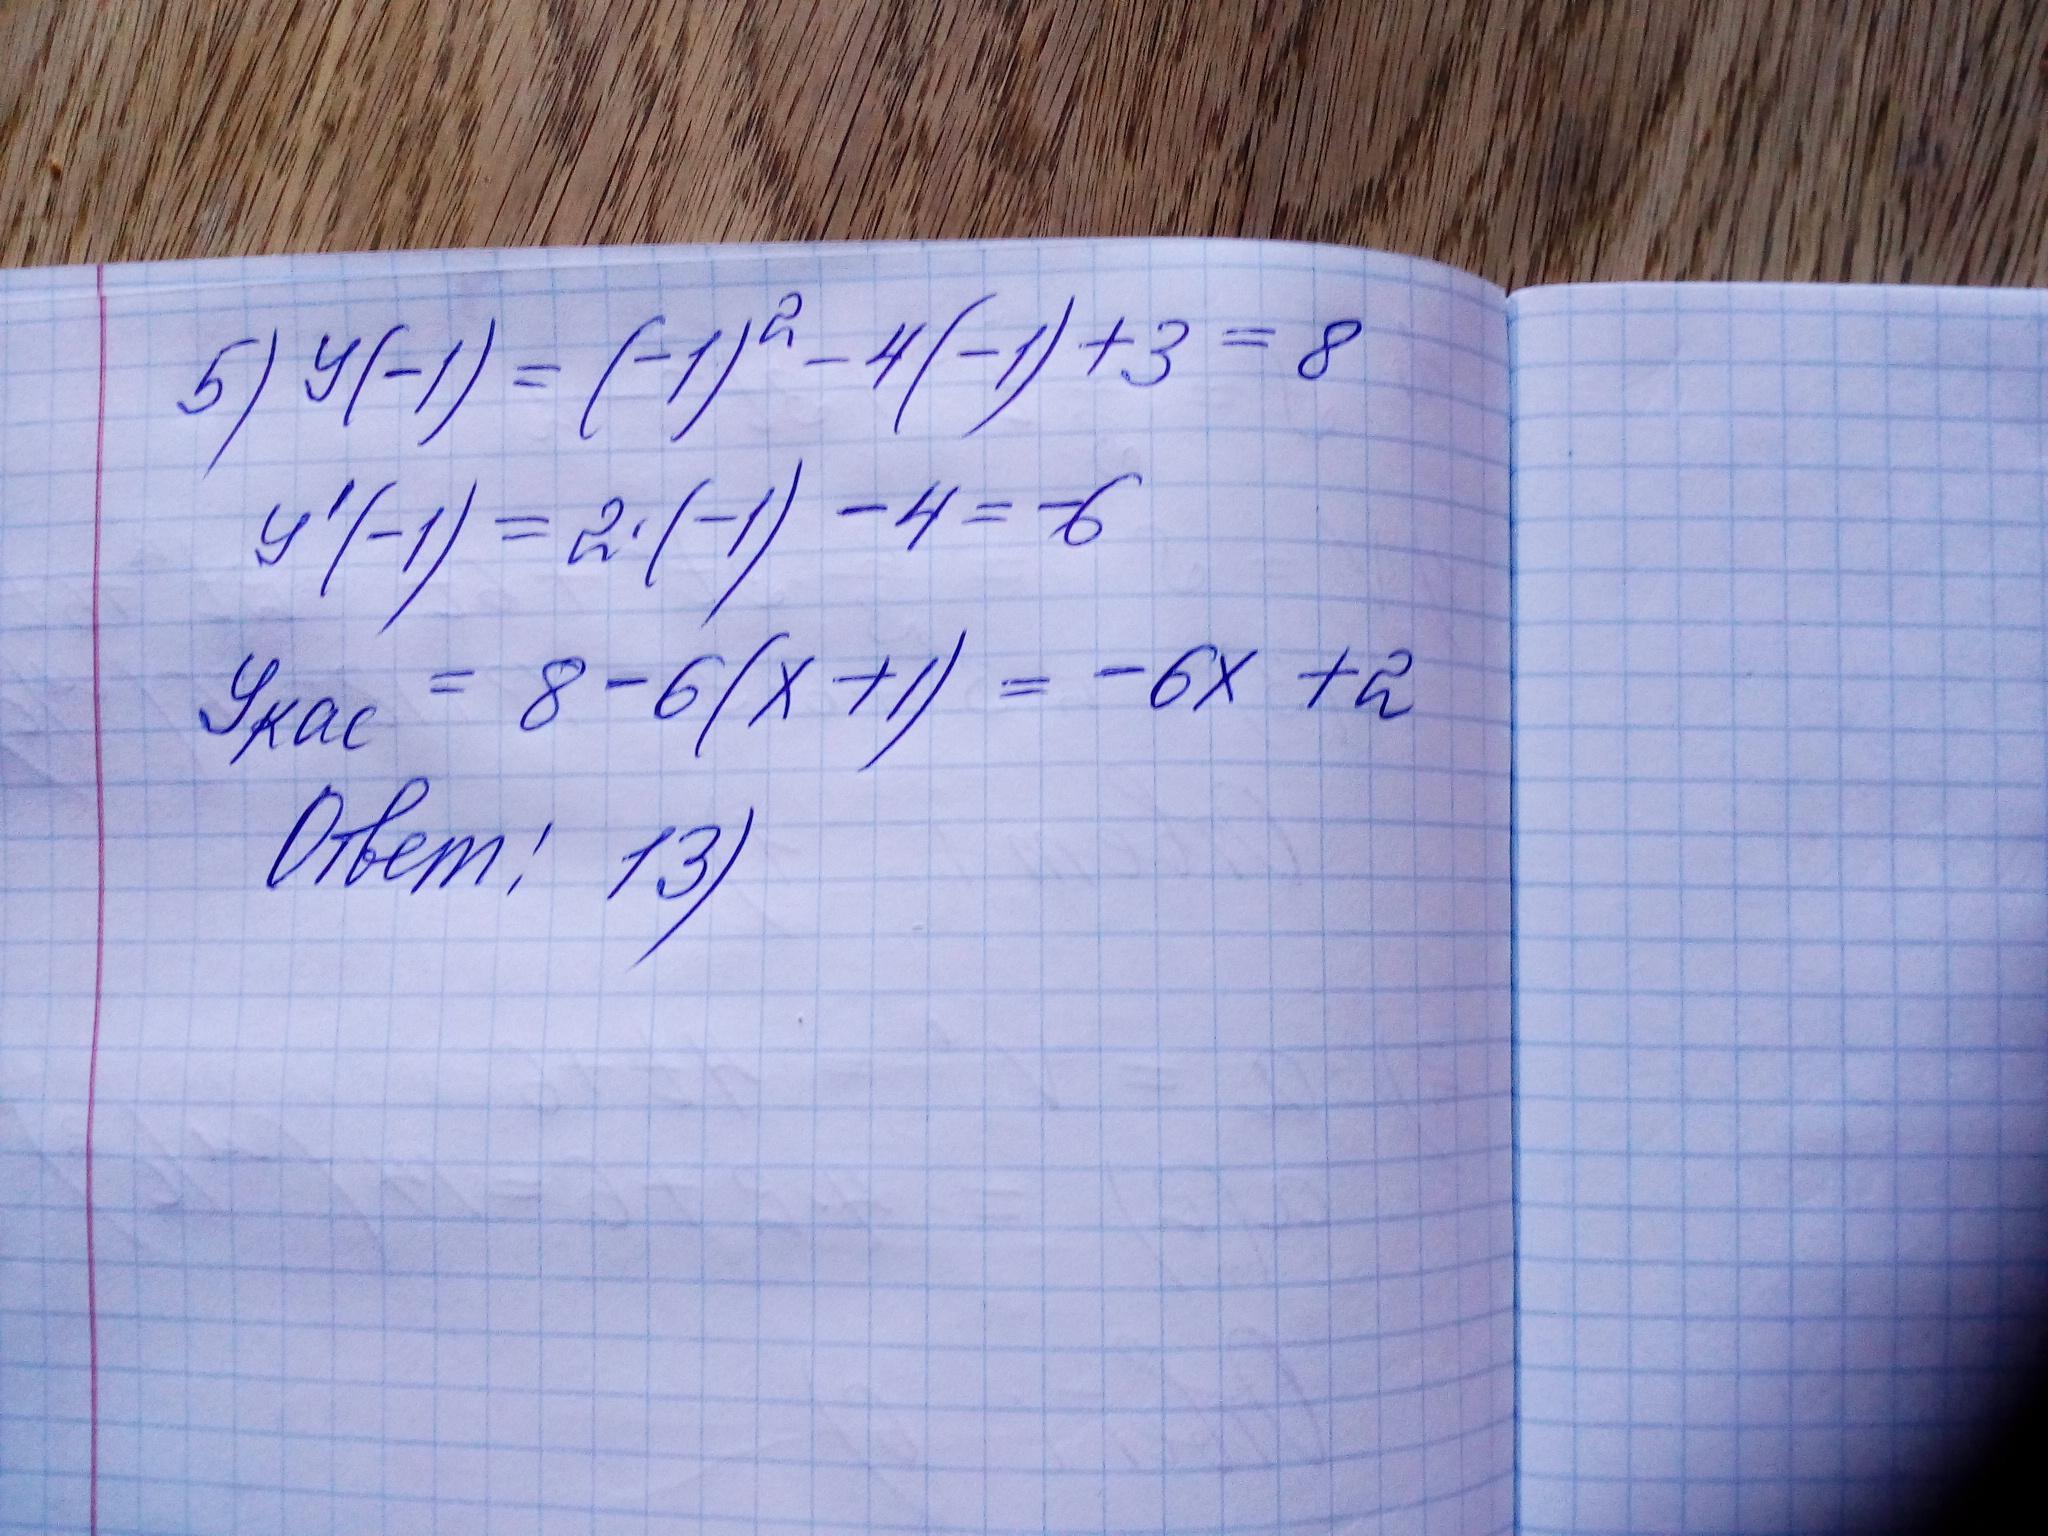 5) y(-1) = (-1)² - 4(-1) + 3 = 8
y'(-1) = 2·(-1) - 4 = -6
Укас = 8 - 6(x+1) = -6x + 2
Ответ: 13)